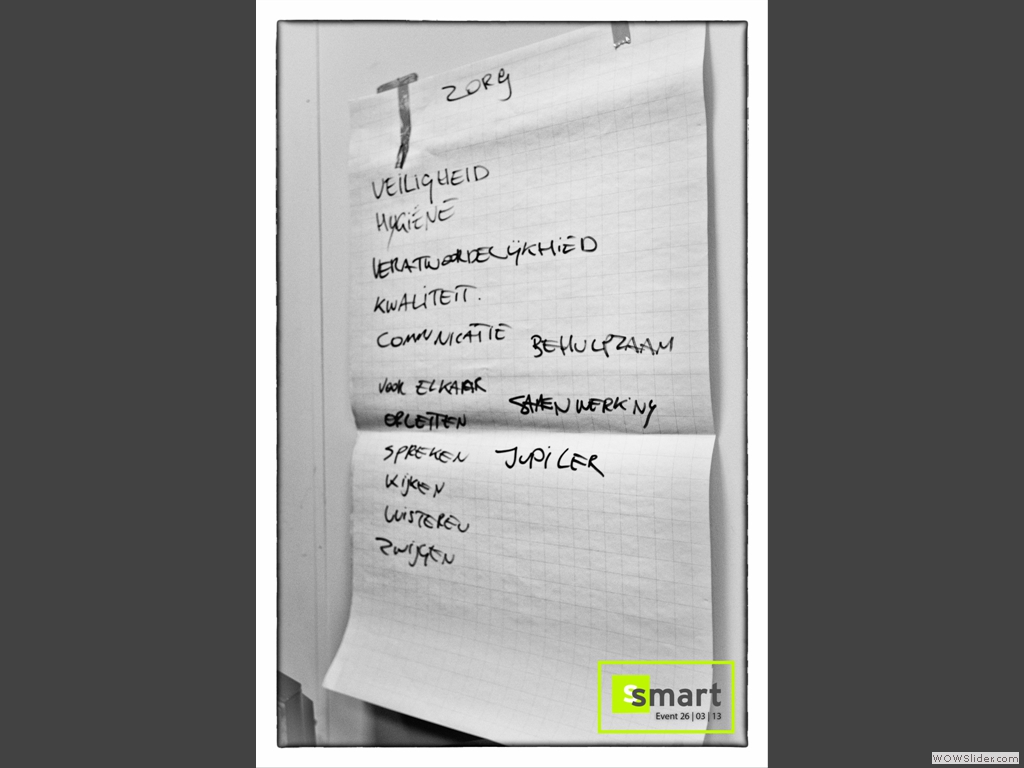 ZORG
VEILIGHEID
HYGIËNE
VERATWOORDELIJKHIED
KWALITEIT.
COMMUNICATIE BEHULPZAAM
VOOR ELKAAR
OPLETTEN SAMENWERKING
SPREKEN JUPILER
KIJKEN
LUISTEREN
ZWIJGEN
ssmart
Event 26 | 03 | 13
WOWSlider.com